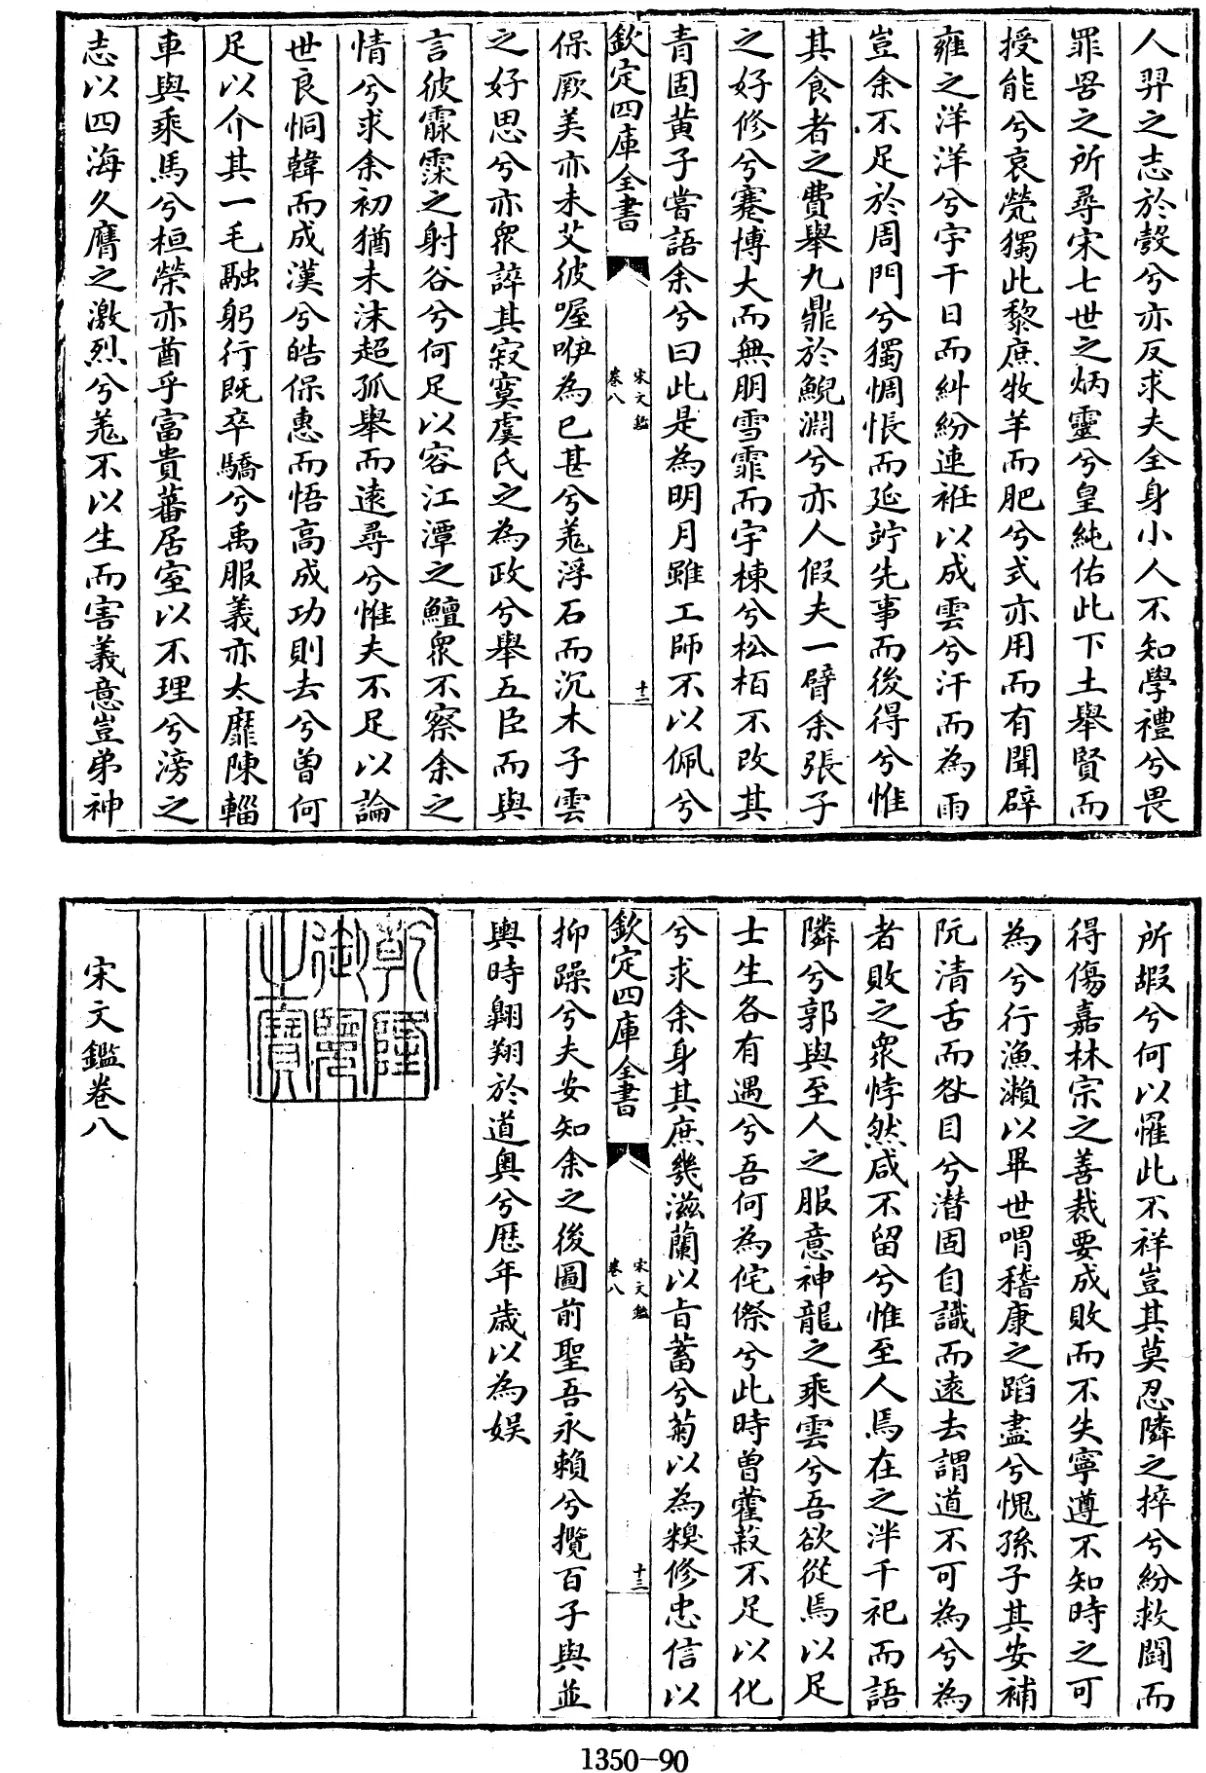 人羿之志於彀兮亦反求夫全身小人不知學禮兮畏
罪罟之所尋宋七世之炳靈兮皇純佑此下土舉賢而
授能兮哀煢獨此黎庶牧羊而肥兮式亦用而有聞辟
雍之洋洋兮宇干日而糾紛連袵以成雲兮汗而為雨
豈余不足於周門兮獨惆悵而延竚先事而後得兮惟
其食者之費舉九鼎於鯢淵兮亦人假夫一臂余張子
之好修兮蹇博大而無朋雪霏而宇棟兮松栢不改其
青固黃子嘗語余兮曰此是為明月雖工師不以佩兮
欽定四庫全書
宋文鑑
卷八
十二
保厥美亦未艾彼喔咿為已甚兮羗浮石而沉木子雲
之好思兮亦衆誶其寂寞虞氏之為政兮舉五臣而與
言彼霢霂之射谷兮何足以容江潭之鱣衆不察余之
情兮求余初猶未沫超孤舉而遠尋兮惟夫不足以論
世良恫韓而成漢兮皓保惠而悟高成功則去兮曾何
足以介其一毛融躬行既卒驕兮禹服義亦太靡陳輜
車與乘馬兮桓榮亦酋乎富貴蕃居室以不理兮滂之
志以四海久膺之激烈兮羗不以生而害義意豈弟神
所嘏兮何以罹此不祥豈其莫忍隣之捽兮紛救鬭而
得傷嘉林宗之善裁要成敗而不失寧遵不知時之可
為兮行漁瀨以畢世喟稽康之蹈盡兮愧孫子其安補
阮清舌而咎目兮潜固自識而遠去謂道不可為兮為
者敗之衆悖然咸不留兮惟至人焉在之泮千祀而語
隣兮郭與至人之服意神龍之乘雲兮吾欲從焉以足
士生各有遇兮吾何為侘傺兮此時曾藿菽不足以化
兮求余身其庶幾滋蘭以旨蓄兮菊以為糗修忠信以
欽定四庫全書
宋文鑑
卷八
十三
抑躁兮夫安知余之後圖前聖吾永賴兮攬百子與並
輿時翺翔於道奧兮歴年歲以為娱
乾隆御覽之寶
宋文鑑卷八
1350-90